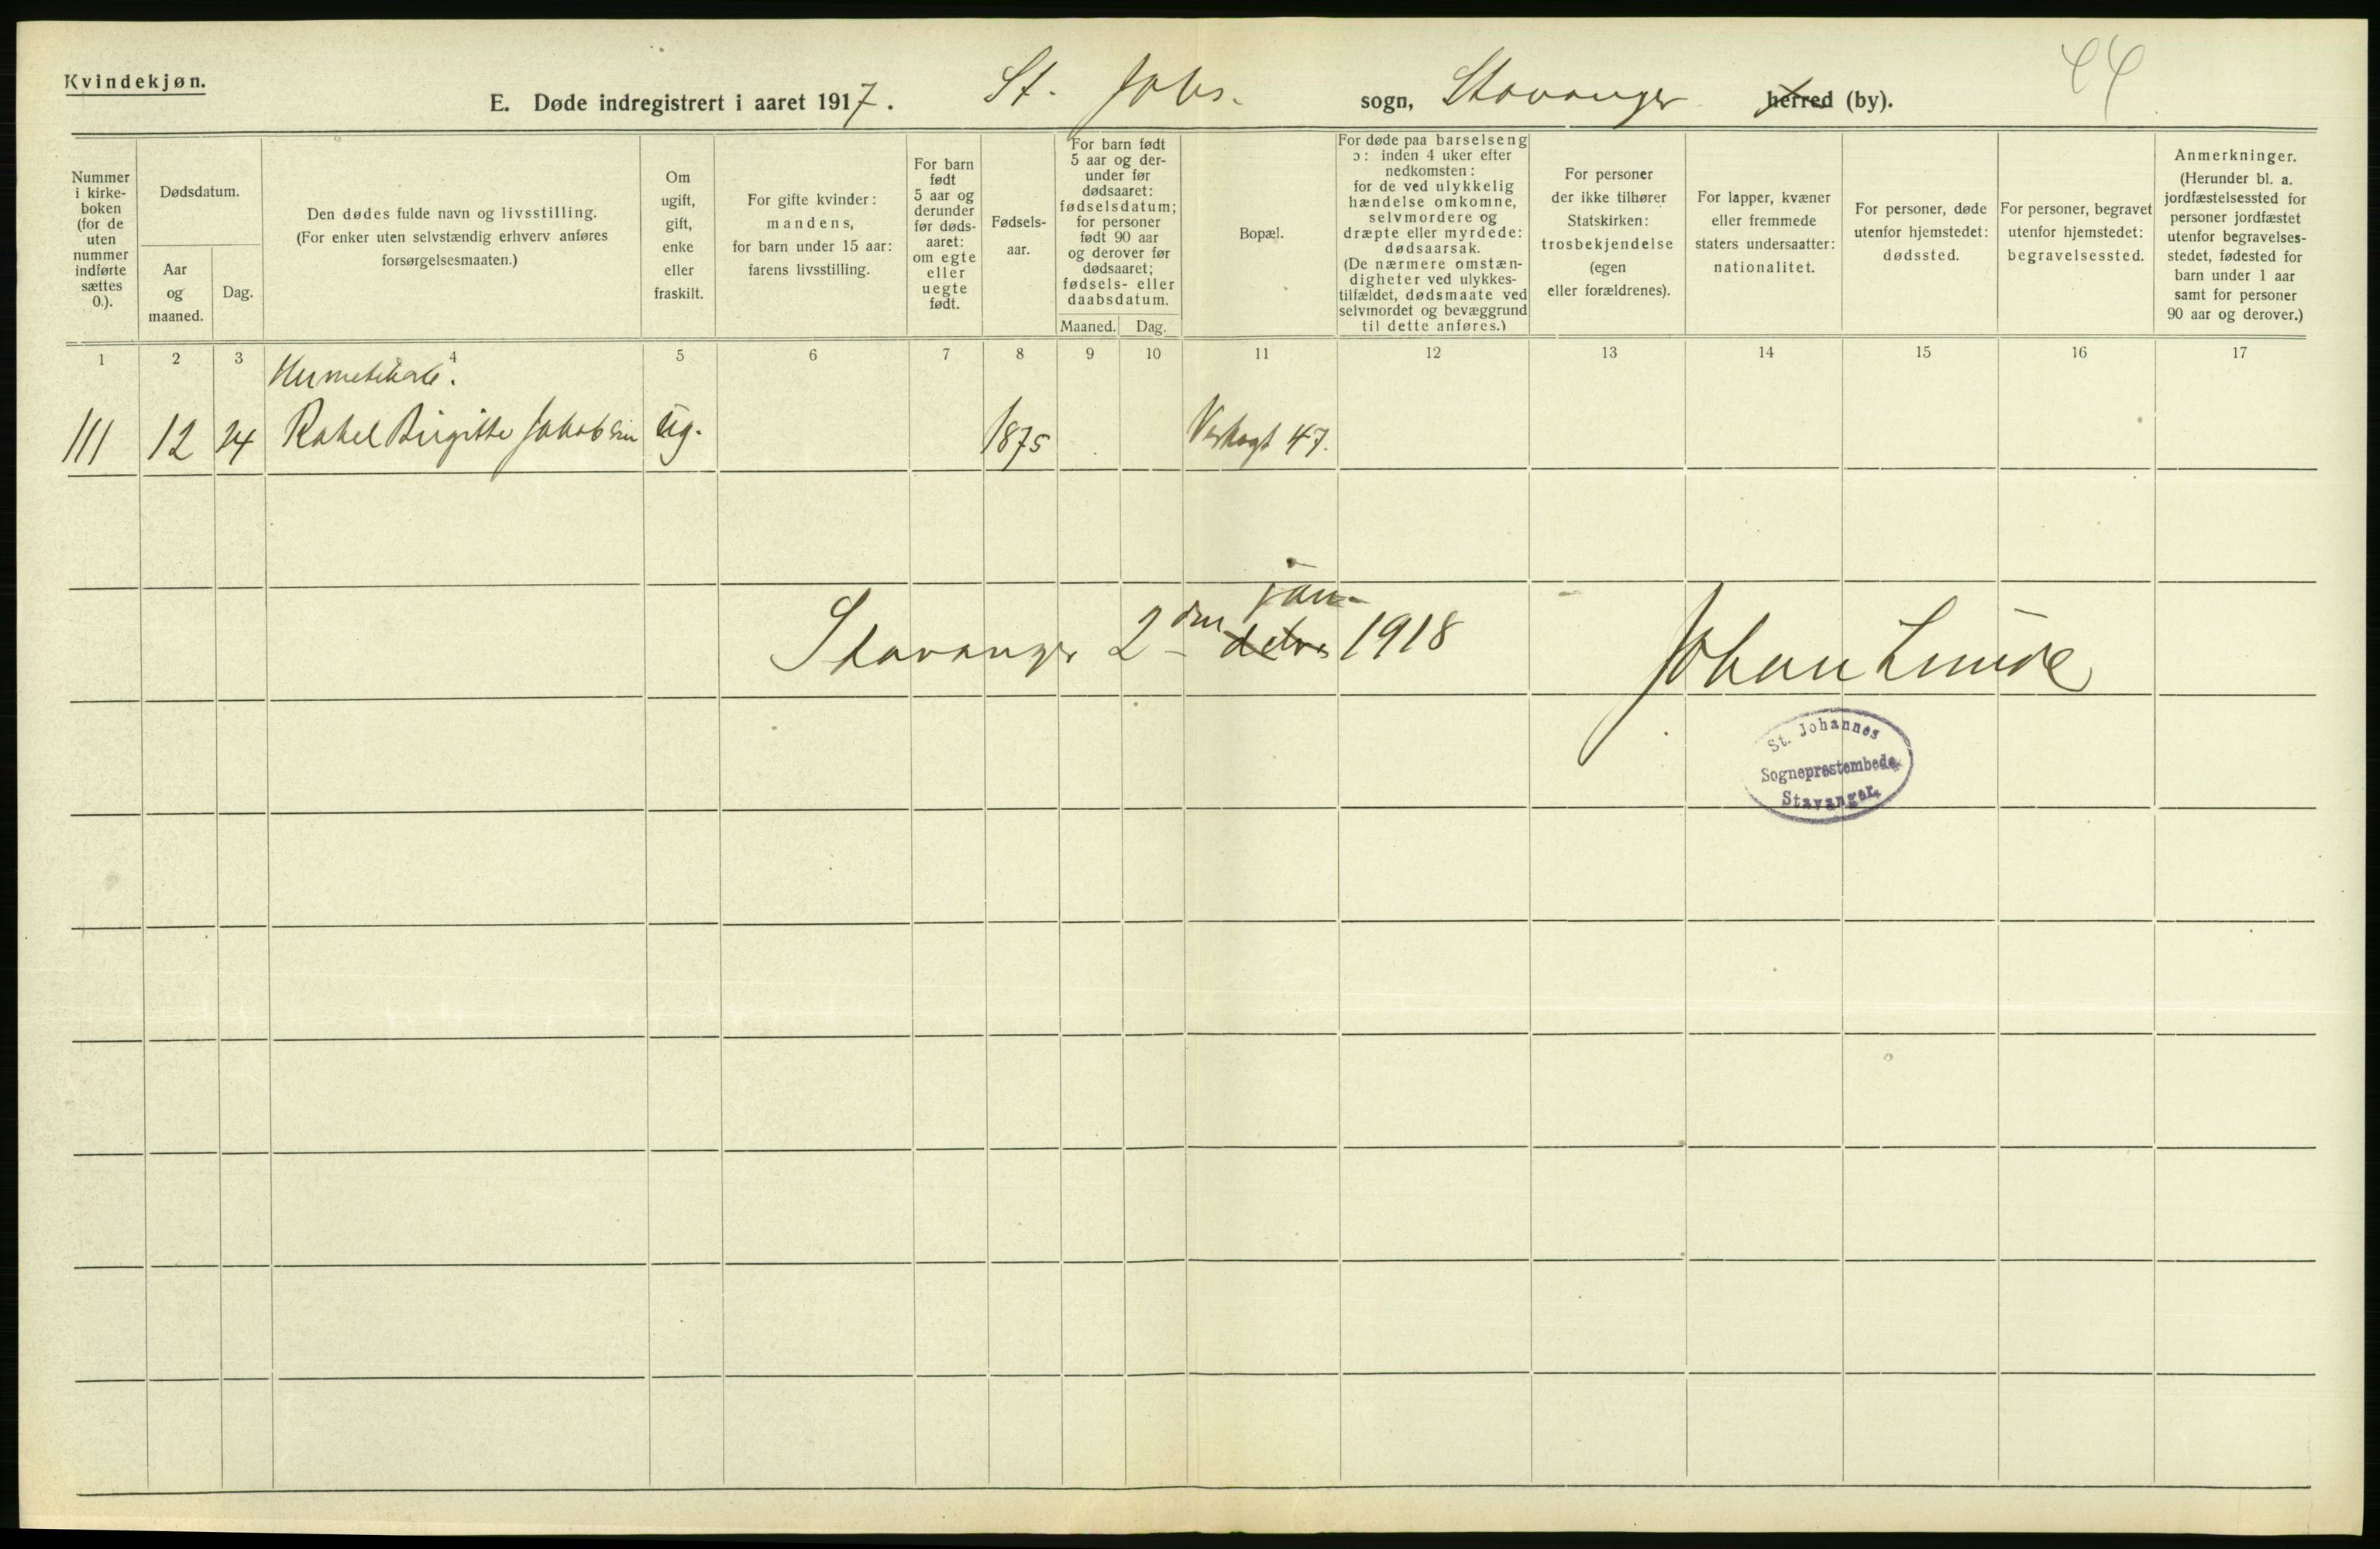 Kvindekjøn.
E. Døde indregistrert i aaret 1917. St. Johs. sogn, Stavanger herred (by).
44
Nummer
i kirke-
boken
(for de
uten
nummer
indførte
sættes
0.).
Dødsdatum.
Aar
og
maaned.
Dag.
Den dødes fulde navn og livsstilling.
(For enker uten selvstændig erhverv anføres
forsørgelsesmaaten.)
Om
ugift,
gift,
enke
eller
fraskilt.
For gifte kvinder:
mandens,
for barn under 15 aar:
farens livsstilling.
For barn
født
5 aar og
derunder
før døds-
aaret:
om egte
eller
uegte
født.
Fødsels-
aar.
For barn født
5 aar og der-
under før
dødsaaret:
fødselsdatum;
for personer
født 90 aar
og derover før
dødsaaret;
fødsels- eller
daabsdatum.
Maaned. Dag.
Bopæl.
For døde paa barselseng
ɔ: inden 4 uker efter
nedkomsten:
for de ved ulykkelig
hændelse omkomne,
selvmordere og
dræpte eller myrdede:
dødsaarsak.
(De nærmere omstæn-
digheter ved ulykkes-
tilfældet, dødsmaate ved
selvmordet og bevæggrund
til dette anføres.)
For personer
der ikke tilhører
Statskirken:
trosbekjendelse
(egen
eller forældrenes).
For lapper, kvæner
eller fremmede
staters undersaatter:
nationalitet.
For personer, døde
utenfor hjemstedet:
dødssted.
For personer, begravet
utenfor hjemstedet:
begravelsessted.
Anmerkninger.
(Herunder bl. a.
jordfæstelsessted for
personer jordfæstet
utenfor begravelses-
stedet, fødested for
barn under 1 aar
samt for personer
90 aar og derover.)
1 2 3 4 5 6 7 8 9 10 11 12 13 14 15 16 17
111 12 24 Rakel Birgitte Jakobsen ug. 1875 47.
jan.
Stavanger 2 den 1918 Johan Lunde
St. Johannes
Sogneprestembede
Stavanger